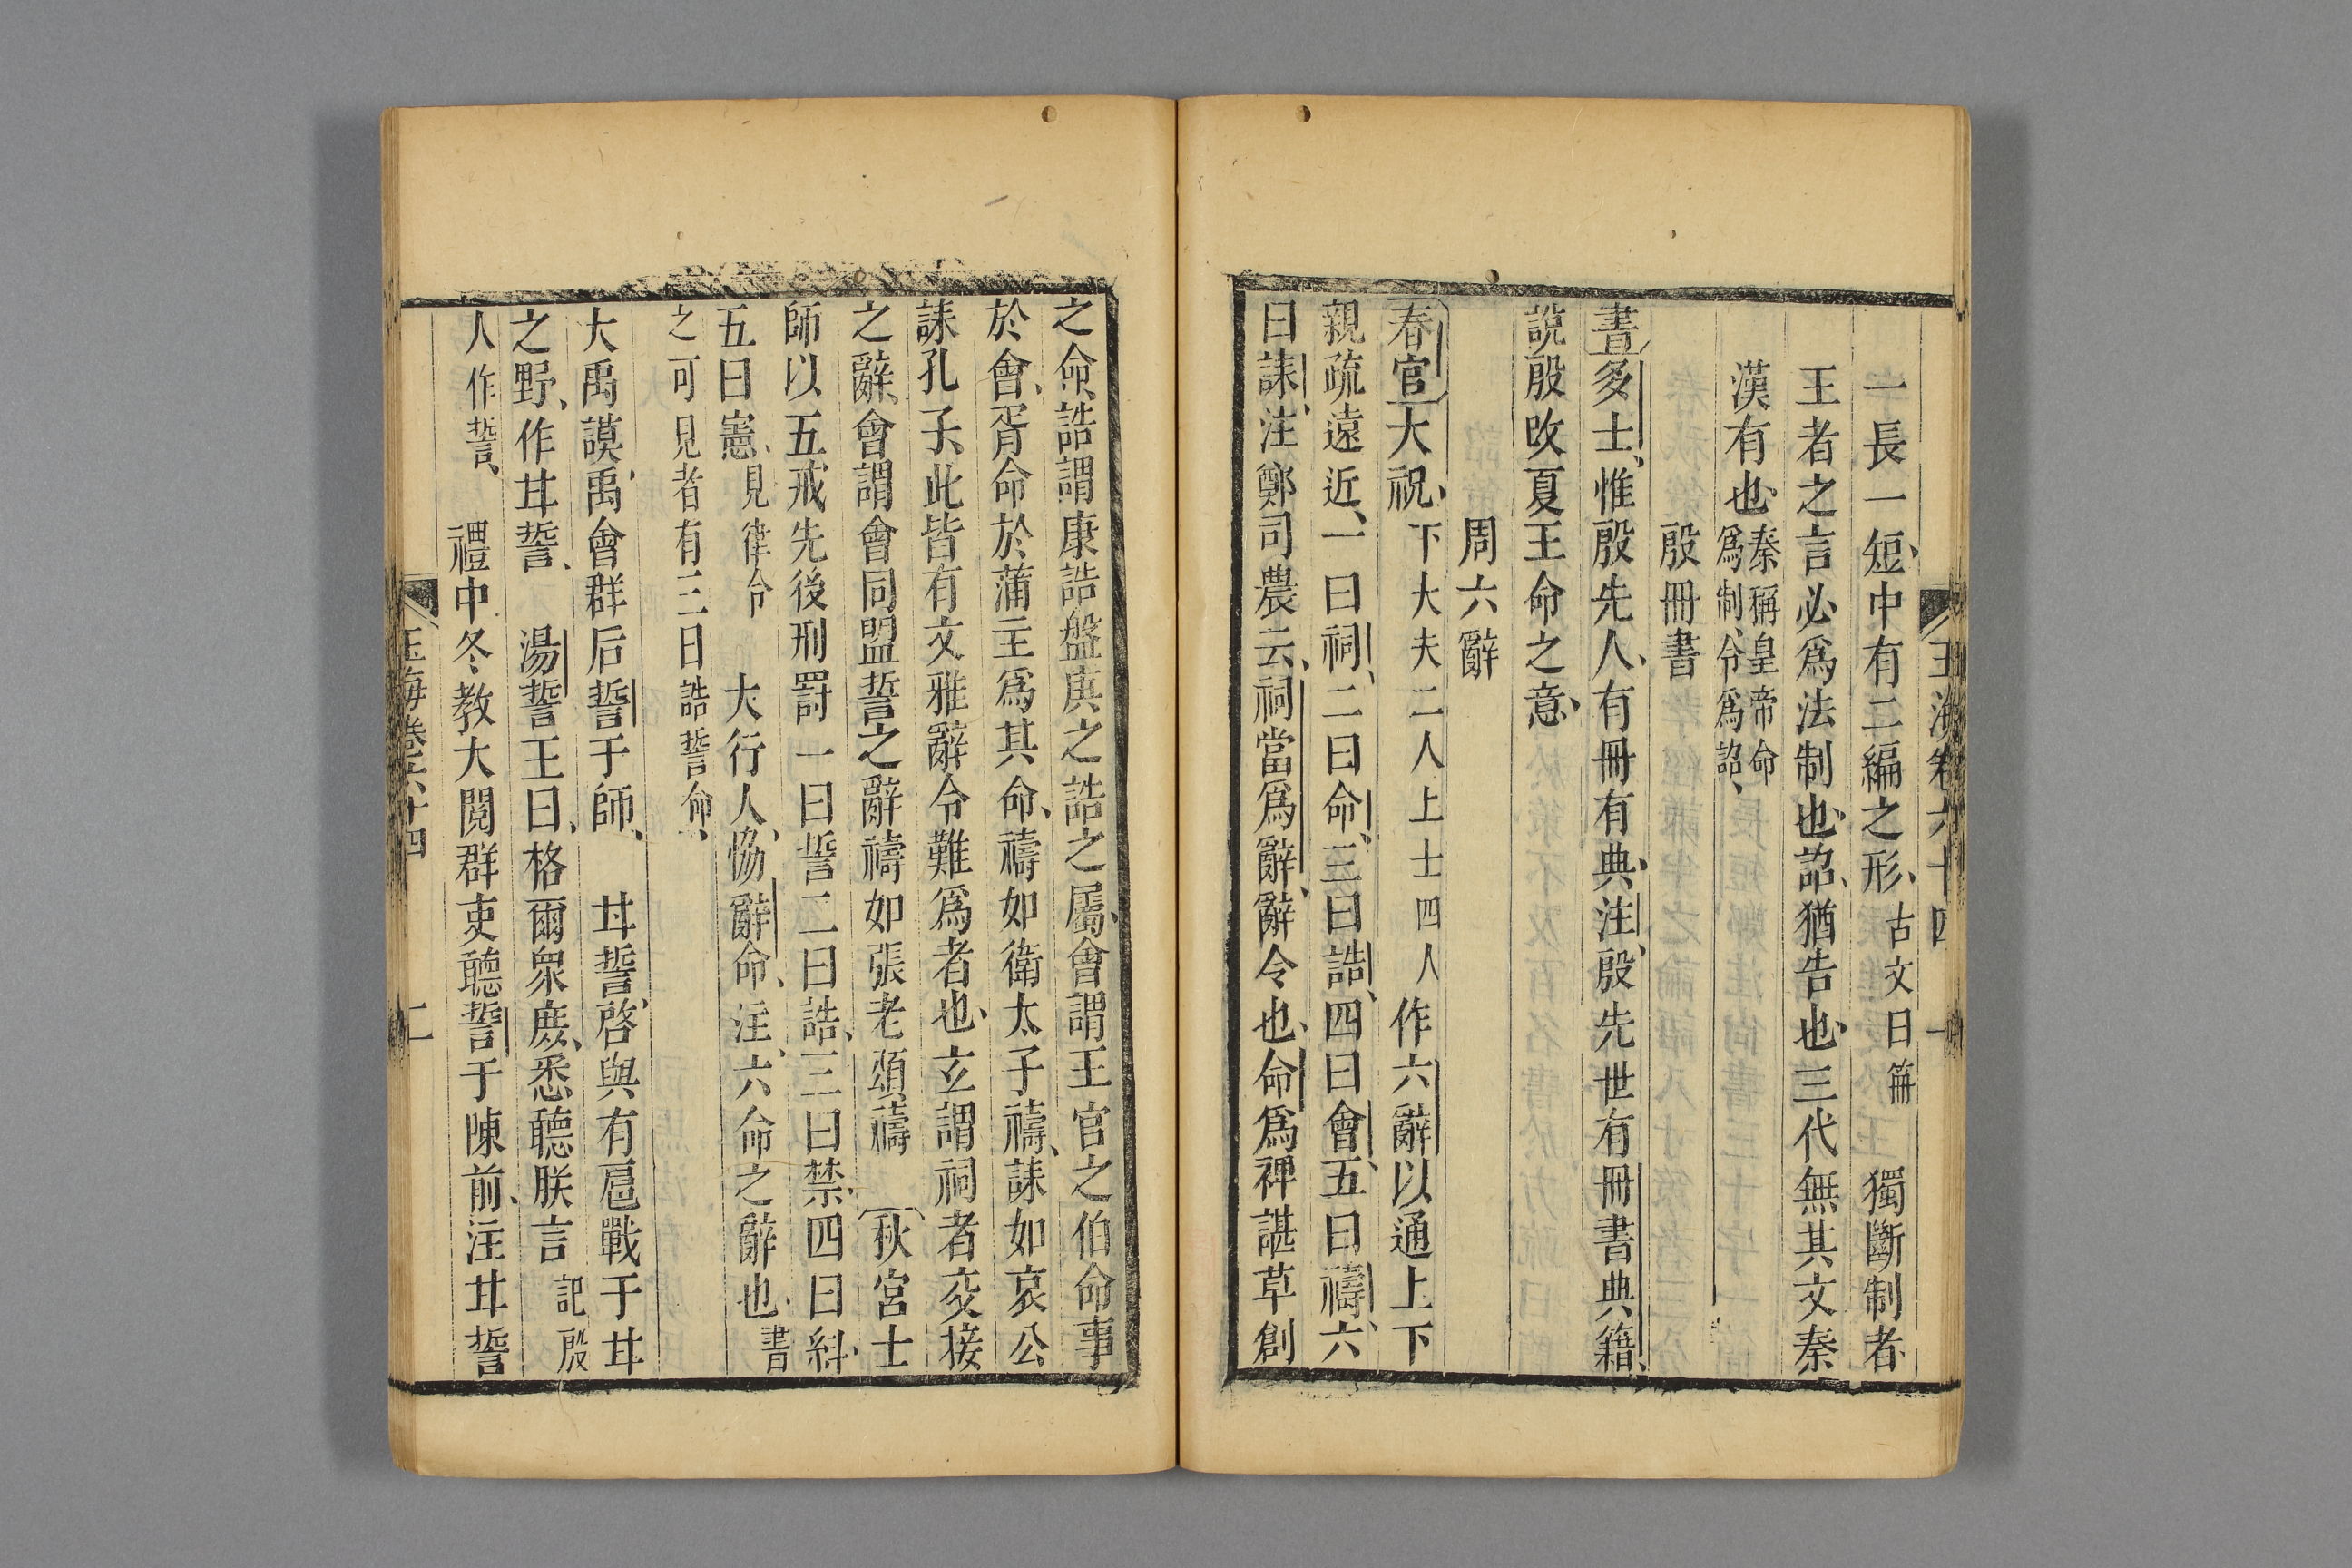 玉海卷六十四
一長一短、中有二編之形、古文曰𥬰　獨斷制者、
王者之言必爲法制也、詔、猶告也、三代無其文秦
漢有也、秦稱皇帝命
爲制、令爲詔、
殷冊書
書多士、惟殷先人、有冊有典、注、殷先世有冊書典籍、
說殷改夏王命之意、
周六辭
春官大祝、下大夫二人上士四人作六辭以通上下
親疏遠近、一曰祠、二曰命、三曰誥、四曰會、五曰禱、六
曰誄、注、鄭司農云、祠當爲辭、辭令也、命爲裨諶草創
之命、誥謂康誥盤庚之誥之屬、會謂王官之伯命事
於會、胥命於蒲主爲其命、禱如衛太子禱、誄如哀公
誄孔子、此皆有文雅辭令難爲者也、玄謂祠者交接
之辭、會謂會同盟誓之辭禱如張老頌禱　秋官士
師以五戒先後刑罰一曰誓二曰誥、三曰禁、四曰糾、
五曰憲、見律令　大行人、協辭命、注、六命之辭也、書
之可見者有三曰誥誓命、
大禹謨、禹會群后誓于師、　甘誓、啓與有扈戰于甘
之野、作甘誓、　湯誓王曰、格爾衆庶、悉聽朕言　記殷
人作誓、　禮中冬教大閱群吏聽誓于陳前、注甘誓
玉海卷六十四　二